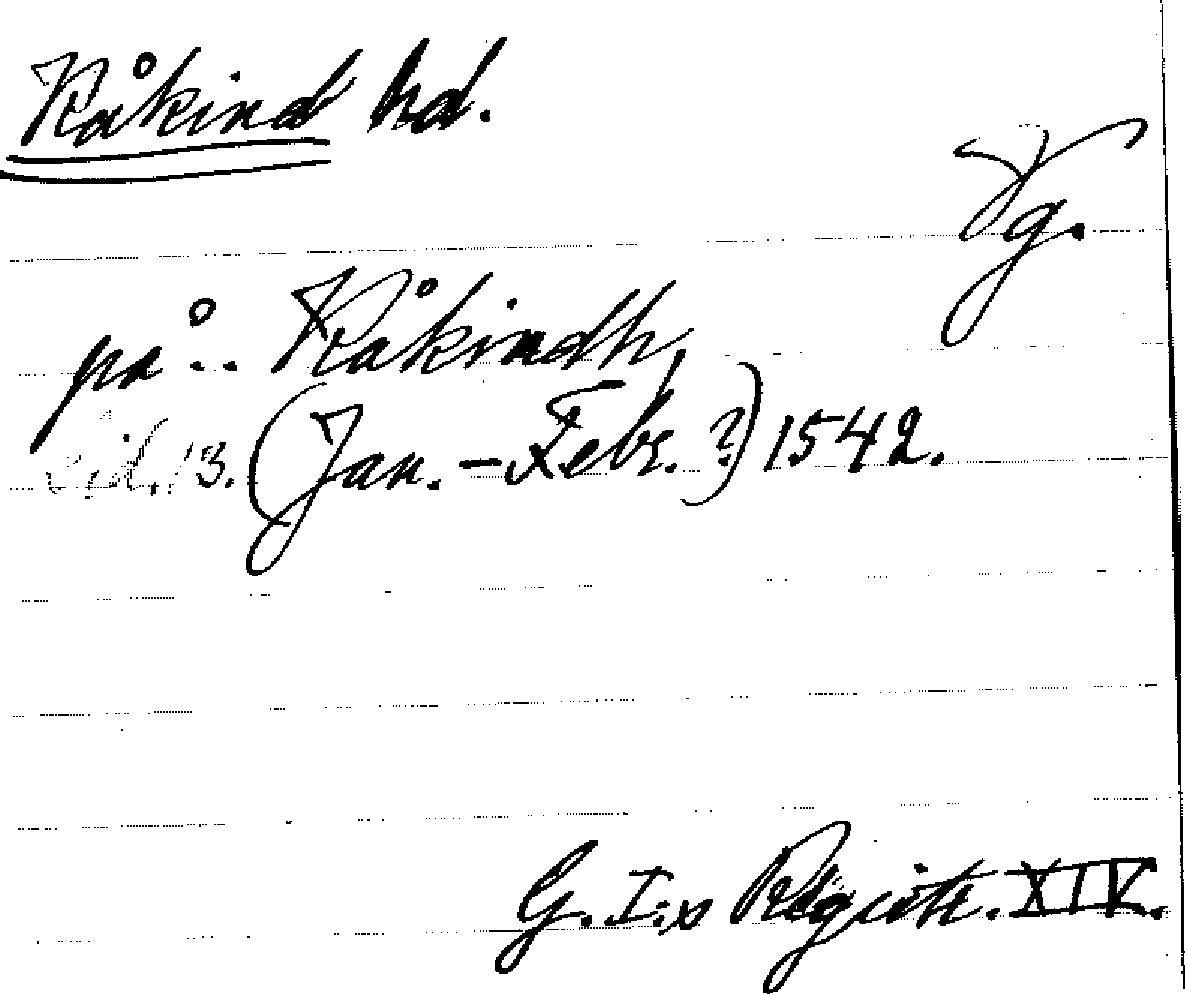 Kåkind hd.
Vg.
på .. Kåkindh,
sid. 13. (Jan. – Febr. ?) 1542.
G. I:s Registr. XIV.